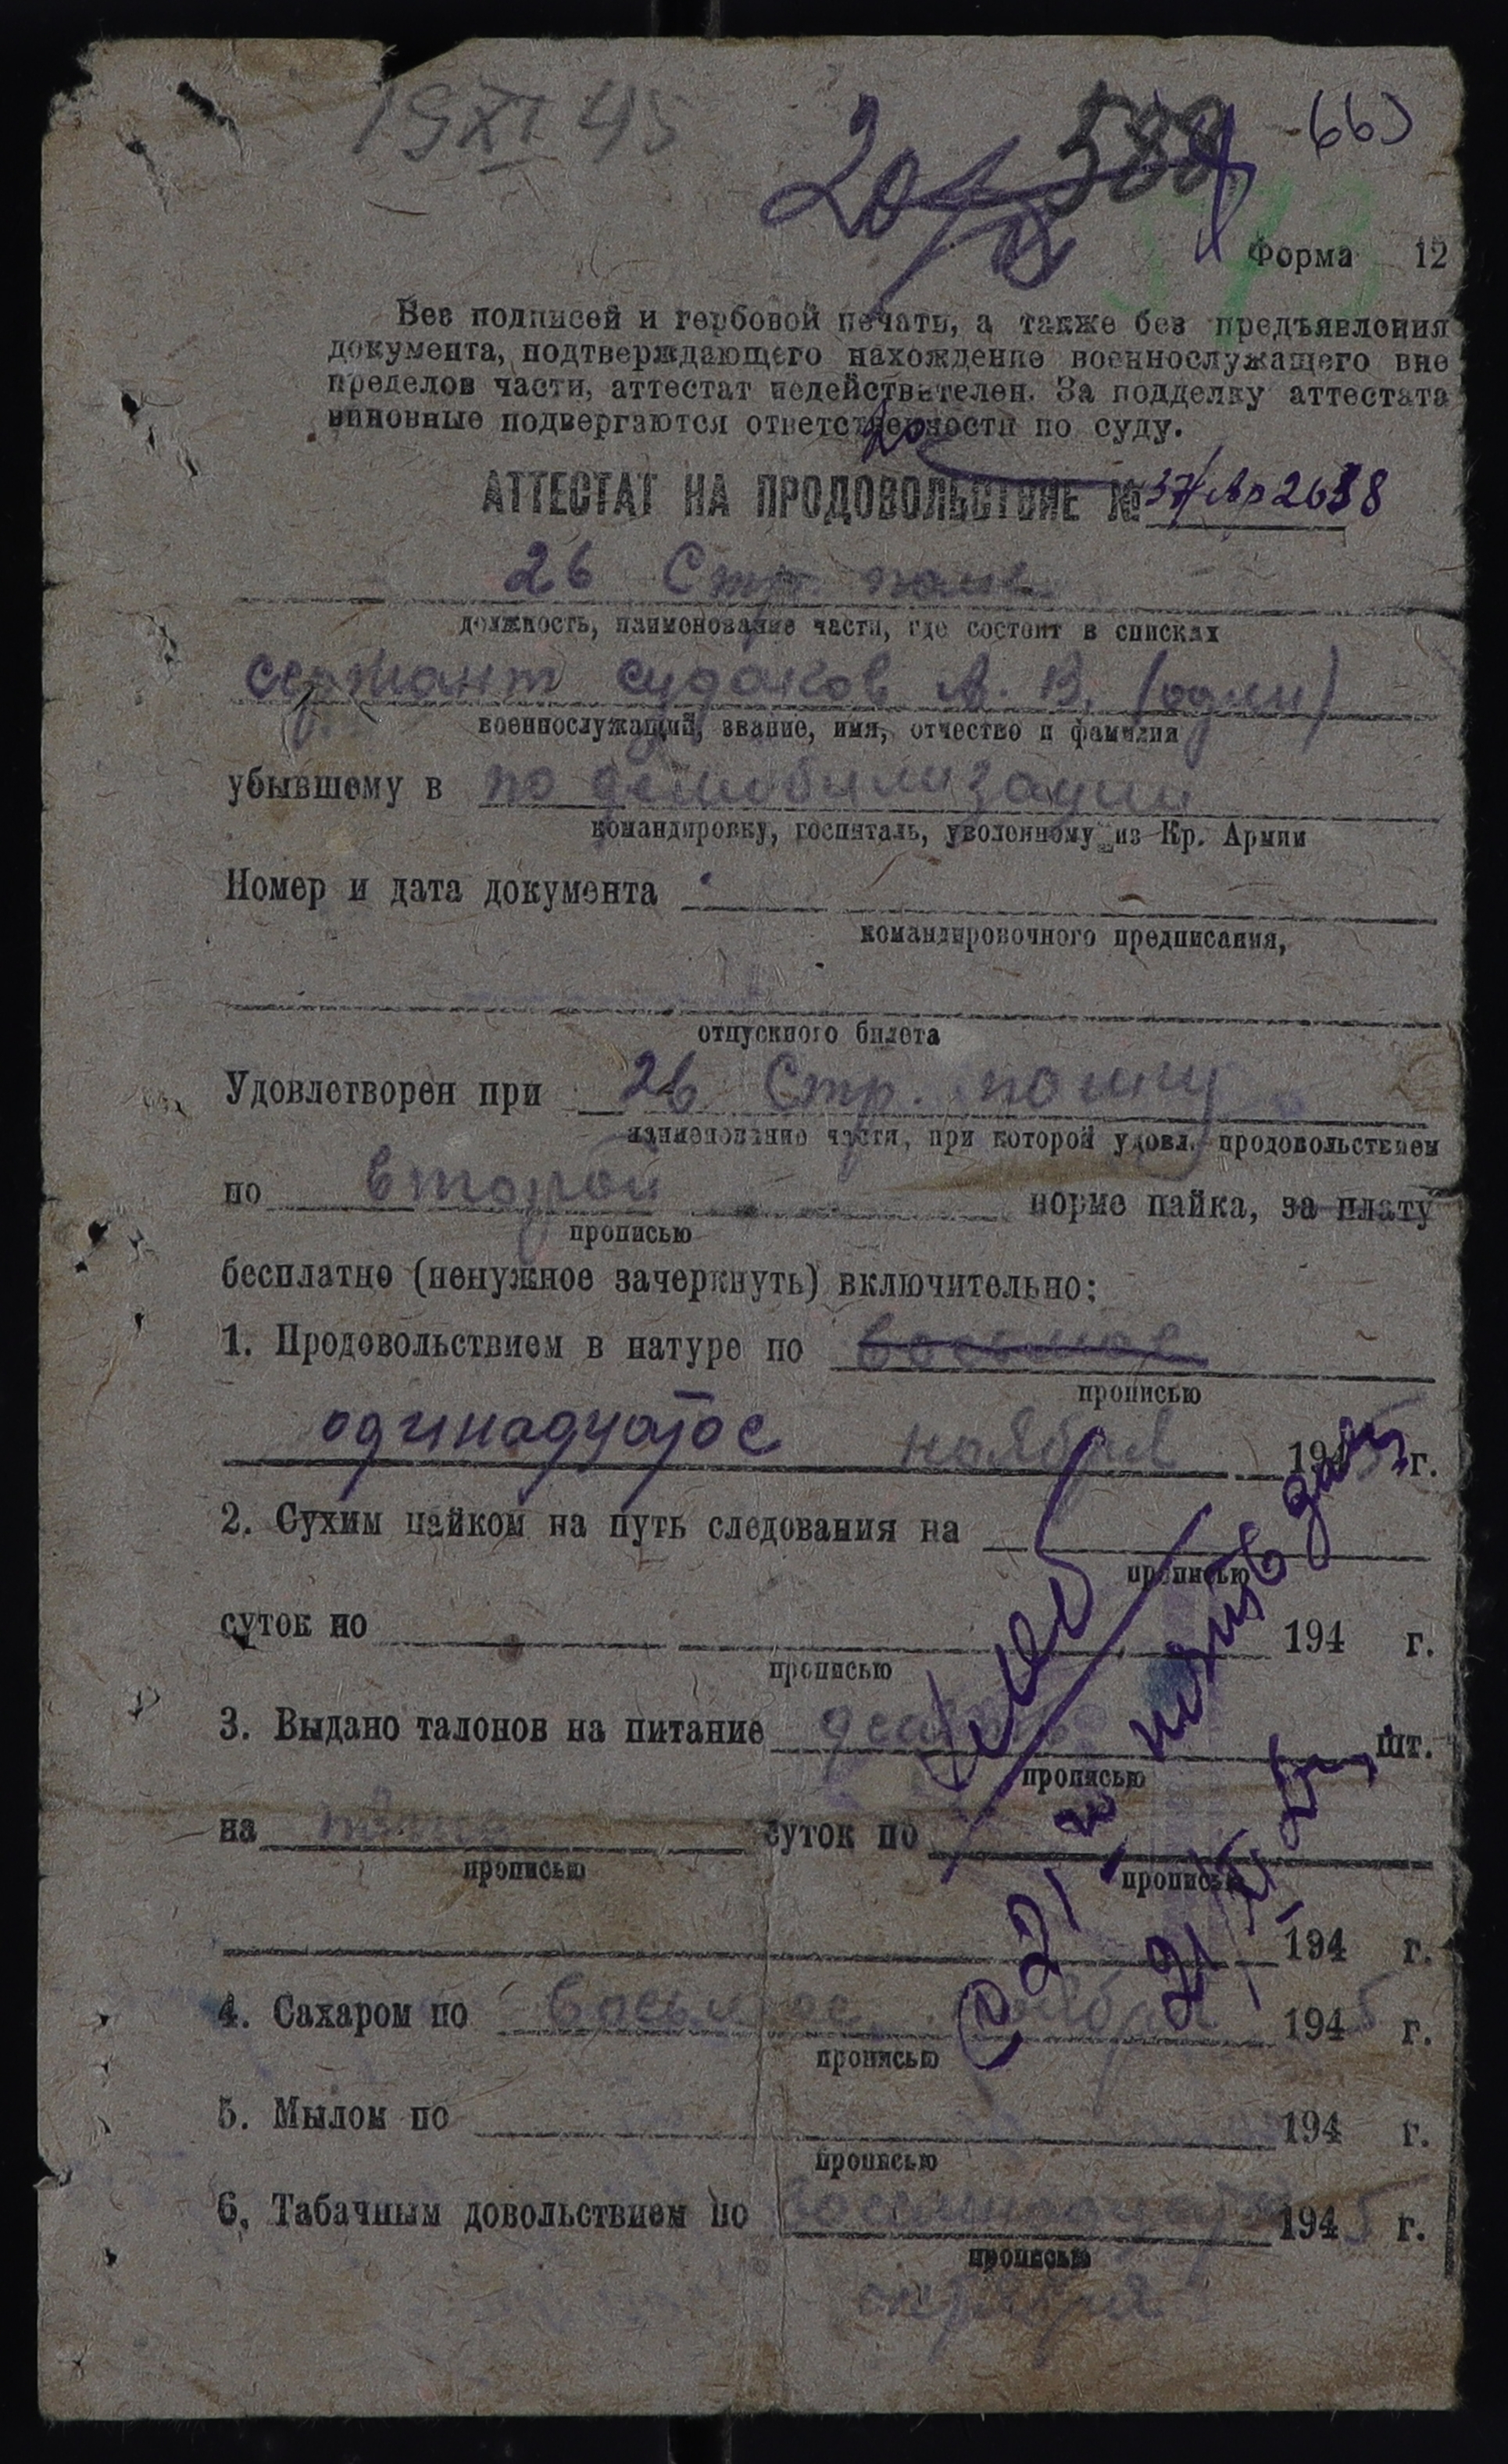 19 XI 45
588
663
573
Форма 12
Без подписей и гербовой печати, а также без предъявления
документа, подтверждающего нахождение военнослужащего вне
пределов части, аттестат недействителен. За подделку аттестата
виновные подвергаются ответственности по суду.
АТТЕСТАТ НА ПРОДОВОЛЬСТВИЕ №
26 Стр. полк
должность, наименование части, где состоит в списках
сержант Судаков А. В. (один)
военнослужащий, звание, имя, отчество и фамилия
убывшему в по демобилизации
командировку, госпиталь, уволенному из Кр. Армии
Номер и дата документа
командировочного предписания,
отпускного билета
Удовлетворен при 26 Стр. полку
наименование части, при которой удовл. продовольствием
по второй норме пайка, за плату
прописью
бесплатно (ненужное зачеркнуть) включительно:
1. Продовольствием в натуре по восьмое
прописью
одинадцатое ноября 1945 г.
2. Сухим пайком на путь следования на
прописью
суток по 194 г.
прописью
3. Выдано талонов на питание шт.
прописью
на суток по
прописью прописью
194 г.
4. Сахаром по восьмое ноября 1945 г.
прописью
5. Мылом по 194 г.
прописью
6. Табачным довольствием по 1945 г.
прописью
октября
хлеб